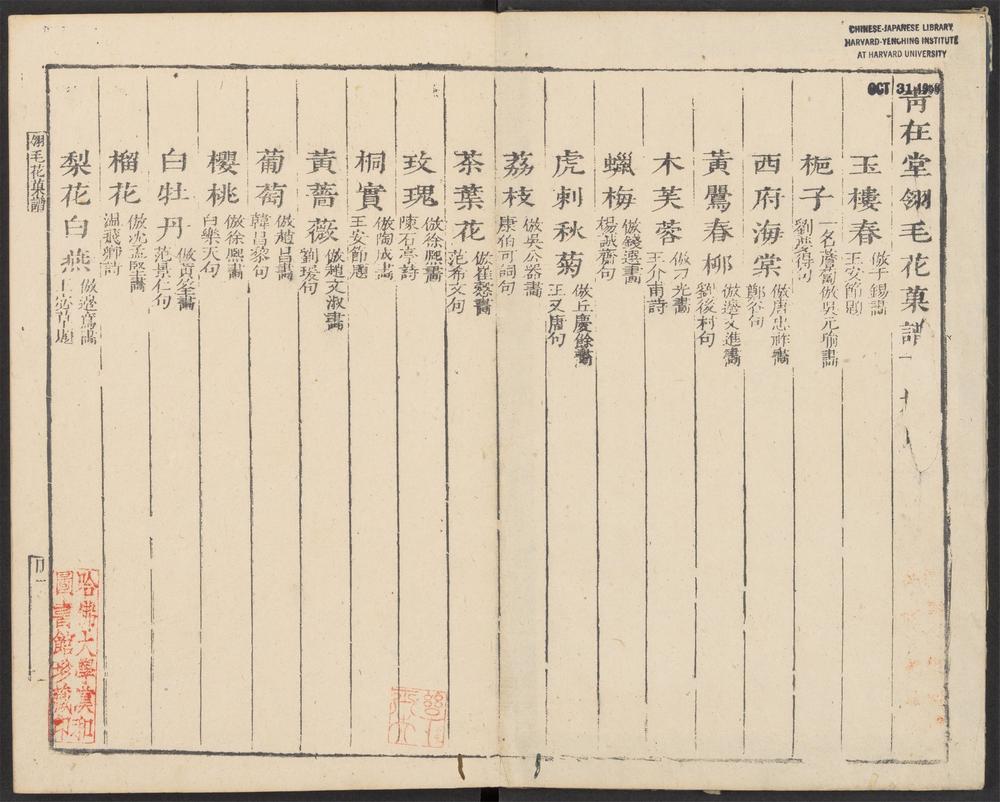 CHINESE-JAPANESE LIBRARY
HARVARD-YENCHING INSTITUTE
AT HARVARD UNIVERSITY
OCT 31
青在堂翎毛花菓譜
玉樓春
倣于錫畵
王安節題
梔子
一名薝蔔倣吳元瑜畵
西府海棠
倣唐忠祚畵
鄭谷句
黃鸎春柳
倣邊文進畵
劉後村句
木芙蓉
倣刁光畵
王介甫詩
蠟梅
倣錢選畵
楊誠齋句
虎刺秋菊
倣丘慶餘畵
王又唐句
荔枝
倣吳公器畵
康伯可詞句
茶葉花
倣崔慤畵
范希文句
玫瑰
倣徐熙畵
陳石亭詩
桐實
倣陶成畵
王安節題
黃薔薇
倣趙文淑畵
劉瑗句
葡萄
倣趙昌畵
韓昌黎句
櫻桃
倣徐熙畵
白樂天句
白牡丹
倣黃筌畵
范景仁句
榴花
倣沈孟堅畵
溫飛卿詩
梨花白燕
倣邊鸞畵
王宓草題
翎毛花菓譜
哈佛大學漢和
圖書館珍藏印